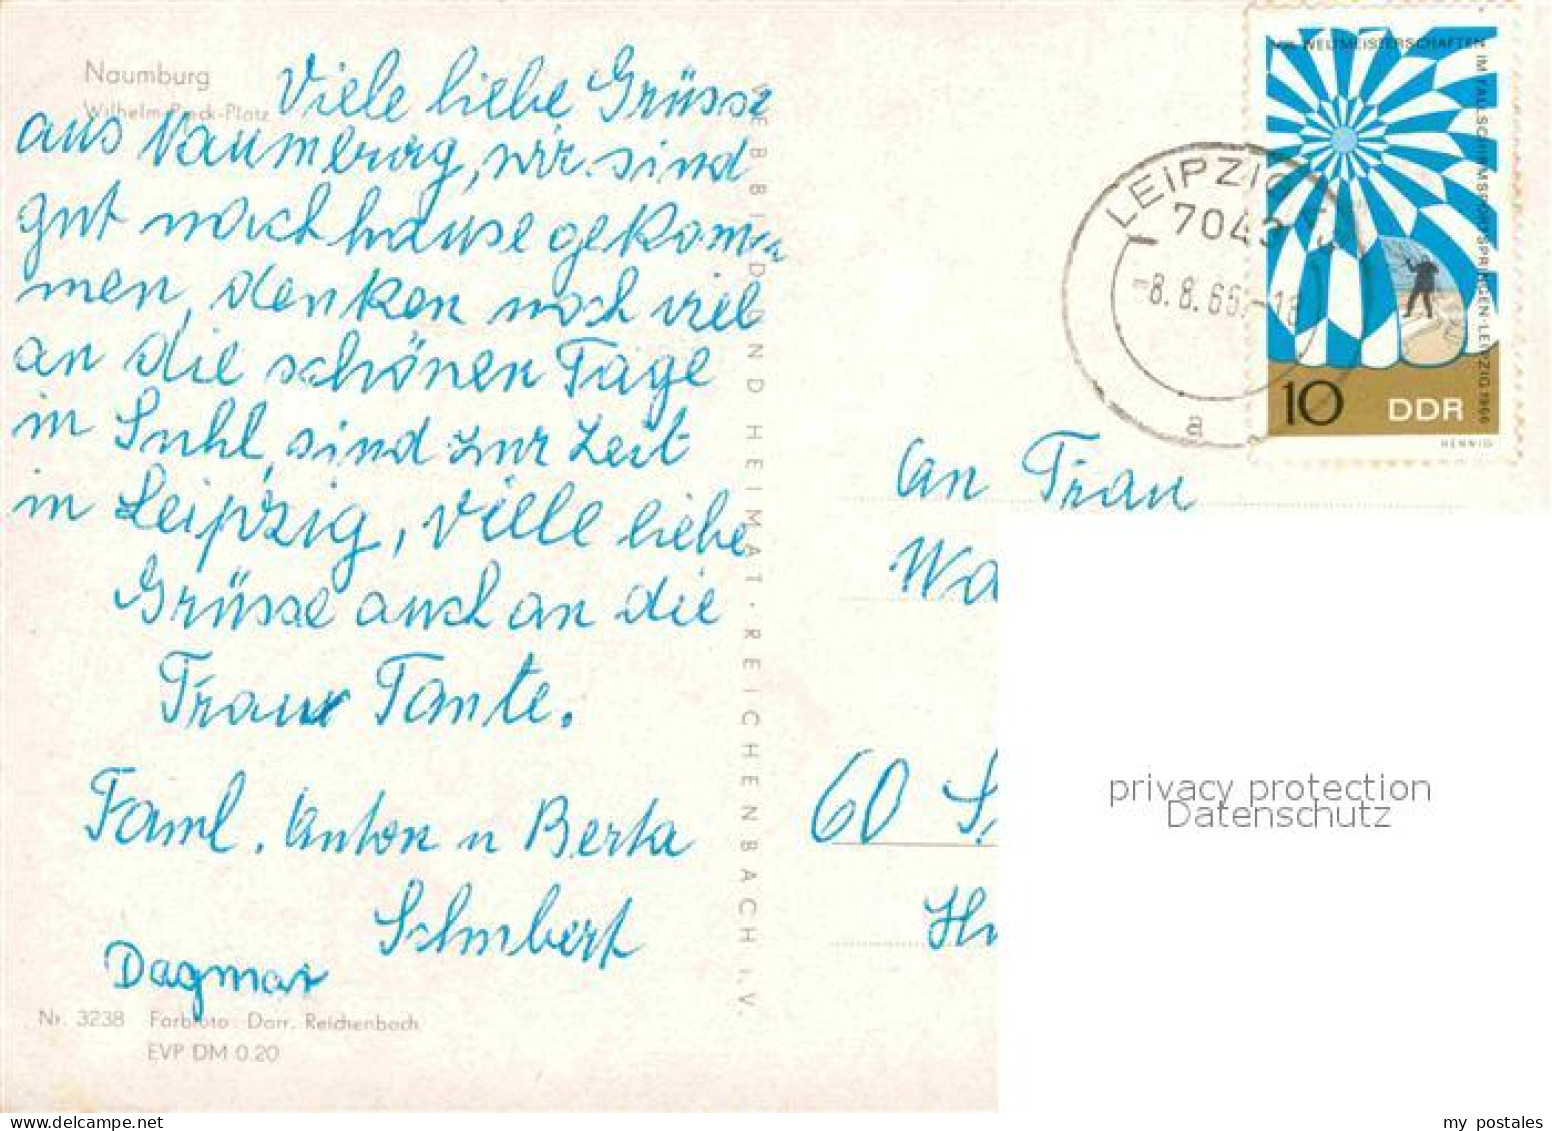 Naumburg
Wilhelm-Pieck-Platz
Viele liebe Grüsse
aus Naumburg, wir sind
gut nach hause gekom-
men, denken noch viel
an die schönen Tage
in Suhl, sind zur Zeit
in Leipzig, viele liebe
Grüsse auch an die
Frau Tante.
Faml. Anton u Berta
Schubert
Dagmar
Nr. 3238 Farbfoto: Darr, Reichenbach
EVP DM 0.20
BILD UND HEIMAT · REICHENBACH I. V.
WELTMEISTERSCHAFTEN IM FALLSCHIRMSPORTSPRINGEN · LEIPZIG 1966
10 DDR
HENNIG
LEIPZIG
7043
-8.8.66.-18
a
An Frau
Wa
60 S
privacy protection
Datenschutz
my postales